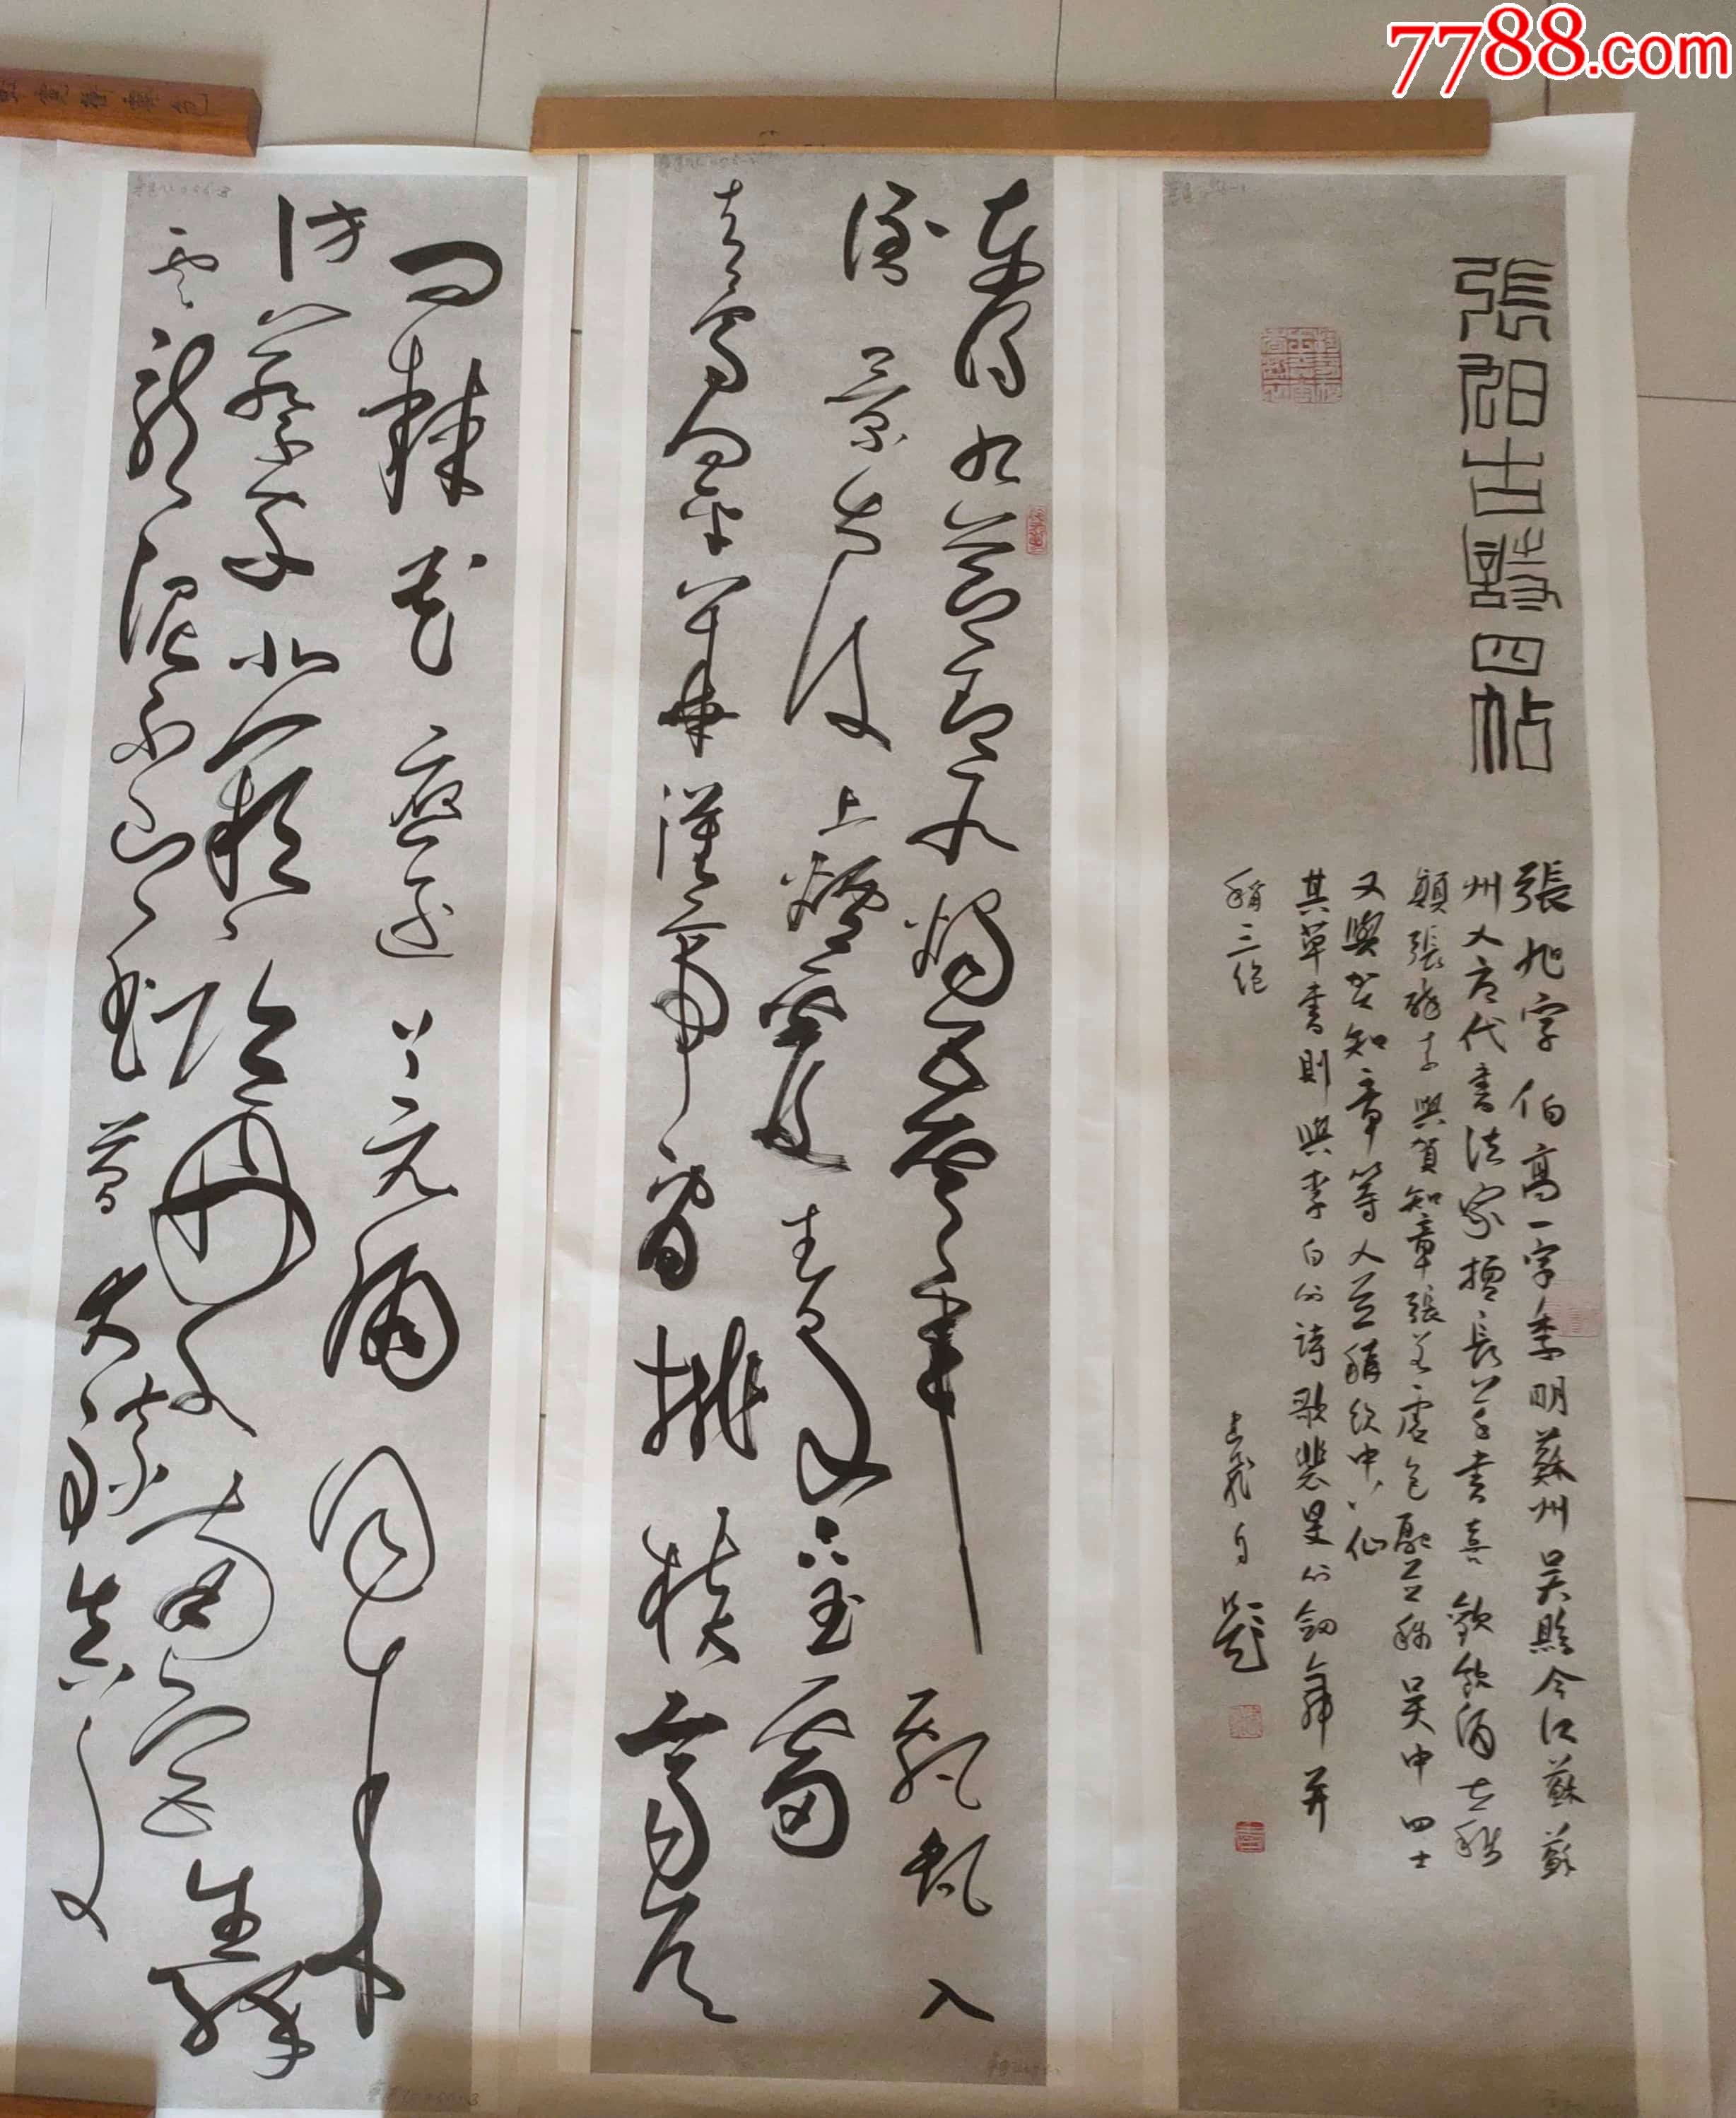 7788.com
張旭古詩四帖
張旭字伯高一字季明蘇州吳縣今江蘇蘇
州人唐代書法家擅長草書喜歡飲酒世稱
顛張醉素與賀知章張若虛包融並稱吳中四士
又與賀知章等人並稱飲中八仙
其草書則與李白的詩歌裴旻的劍舞并
稱三絕
自題
東明九芝蓋北燭五雲車飄飖入
倒景出沒上煙霞春泉下玉霤
青鳥向金華漢帝看桃核齊侯
問棘花應逐上元酒同來
訪蔡家北闕臨丹水南宮生絳
雲龍泥印玉簡大火練真文